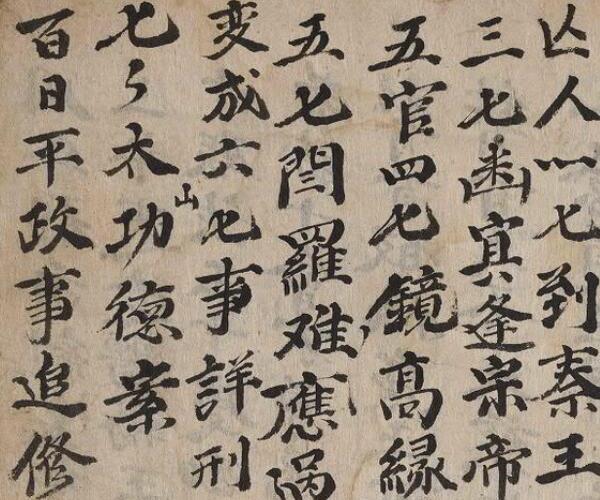 亾人七到秦王
三七幽冥逢宋帝
五官四七鏡高縁
五七閻羅难應
变成六七事詳刑
七々太山功徳案
百日平政事追修